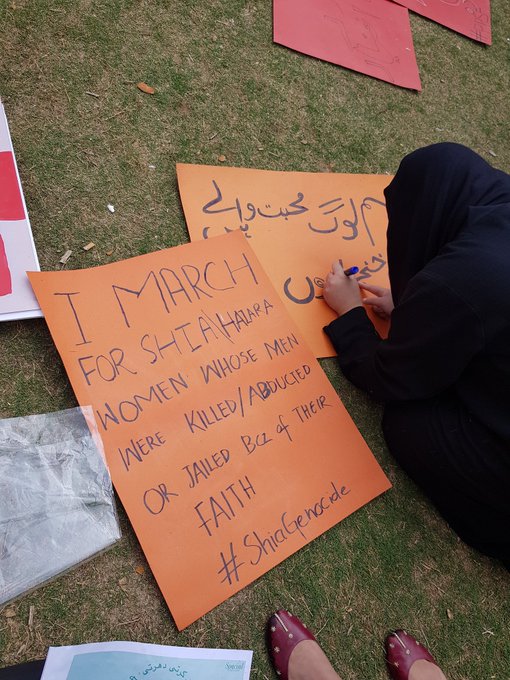 I MARCH
FOR SHIA\HAZARA
WOMEN WHOSE MEN
WERE KILLED/ABDUCTED
OR JAILED Bcz of THEIR
FAITH
#ShiaGenocide
ہم لوگ محبت والے
ہیں